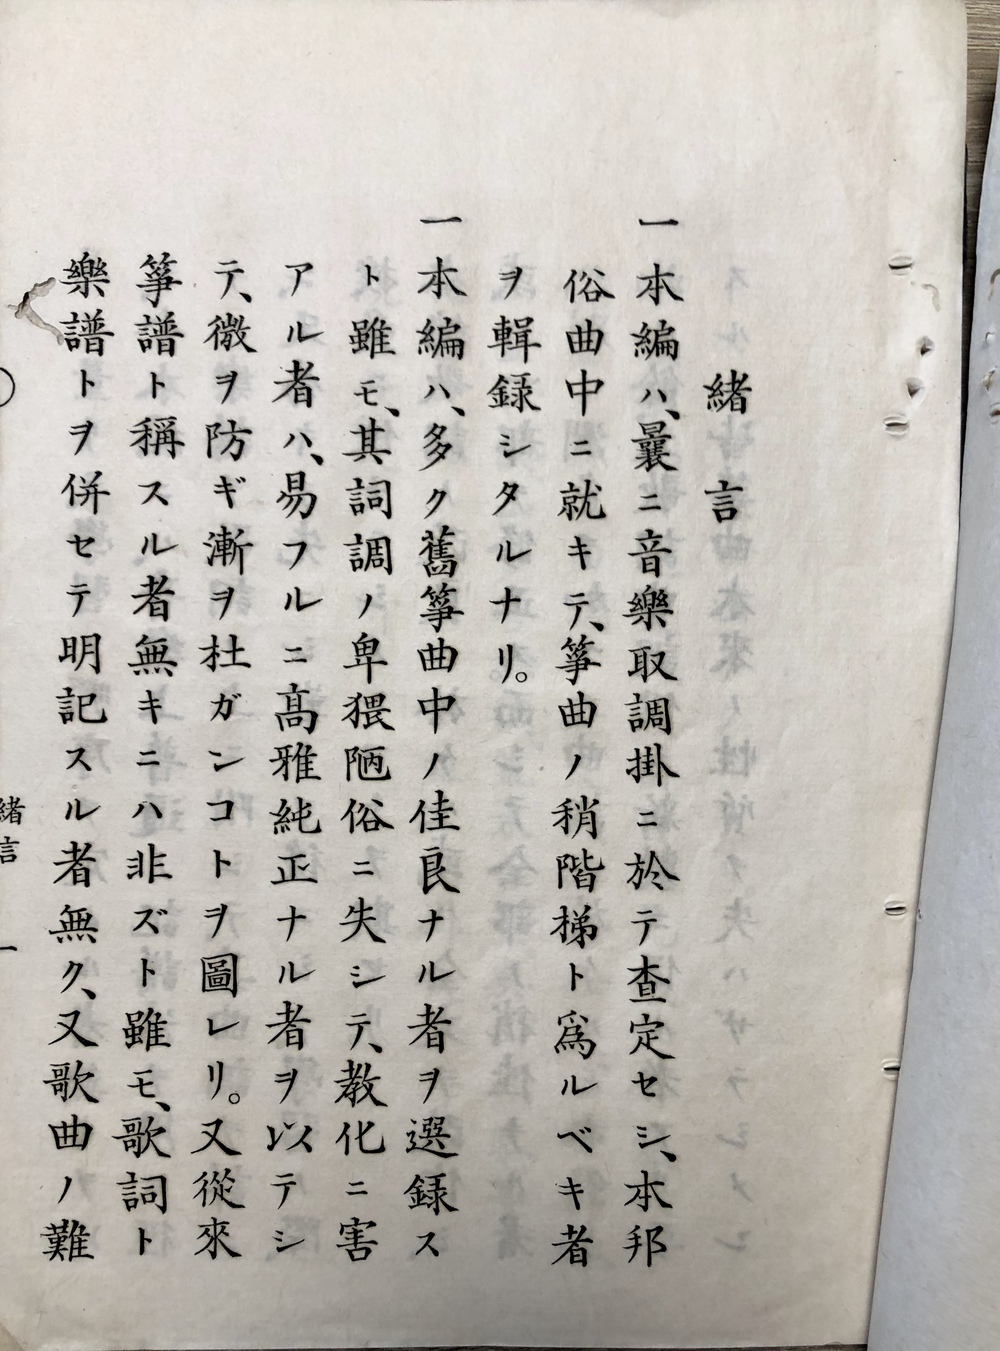 緒言
一 本編ハ、曩ニ音樂取調掛ニ於テ査定セシ、本邦
俗曲中ニ就キテ、箏曲ノ稍階梯ト爲ルベキ者
ヲ輯録シタルナリ。
一 本編ハ、多ク舊箏曲中ノ佳良ナル者ヲ選録ス
ト雖モ、其詞調ノ卑猥陋俗ニ失シテ、教化ニ害
アル者ハ、易フルニ髙雅純正ナル者ヲ以テシ
テ、微ヲ防ギ漸ヲ杜ガンコトヲ圖レリ。又從來
箏譜ト稱スル者無キニハ非ズト雖モ、歌詞ト
樂譜トヲ併セテ明記スル者無ク、又歌曲ノ難
緒言 一